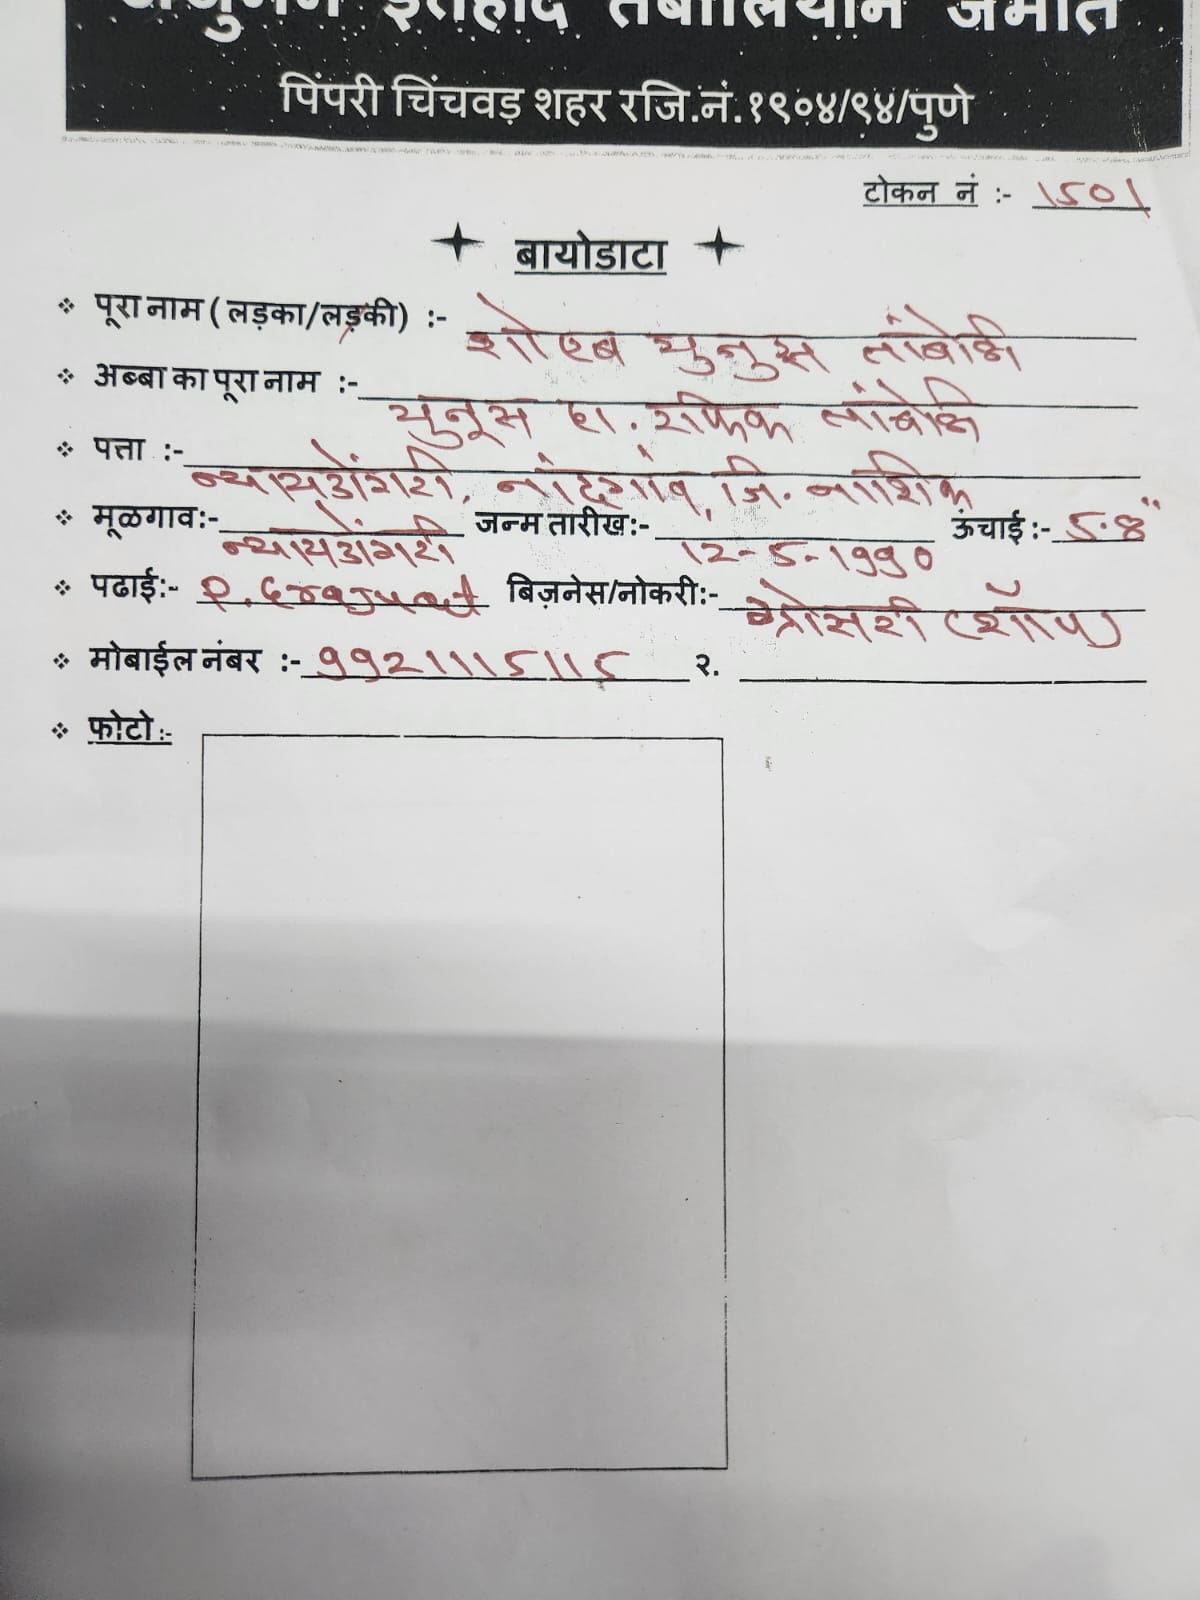 अंजुमन इत्तेहाद तंबोलियान जमात
पिंपरी चिंचवड़ शहर रजि.नं.१९०४/९४/पुणे
टोकन नं :- 1501
बायोडाटा
पूरा नाम ( लड़का/लड़की) :- शोएब युनुस तांबोळी
अब्बा का पूरा नाम :- युनूस हा. रफिक तांबोळी
पत्ता :- न्यायडोंगरी, नांदगांव, जि. नाशिक
मूळगाव:- न्यायडोंगरी जन्म तारीख:- 12-5-1990 ऊंचाई :- 5.8"
पढाई:- P. Grajuat बिज़नेस/नोकरी:- ग्रोसरी (शॉप)
मोबाईल नंबर :- 9921115115 २.
फोटो:-